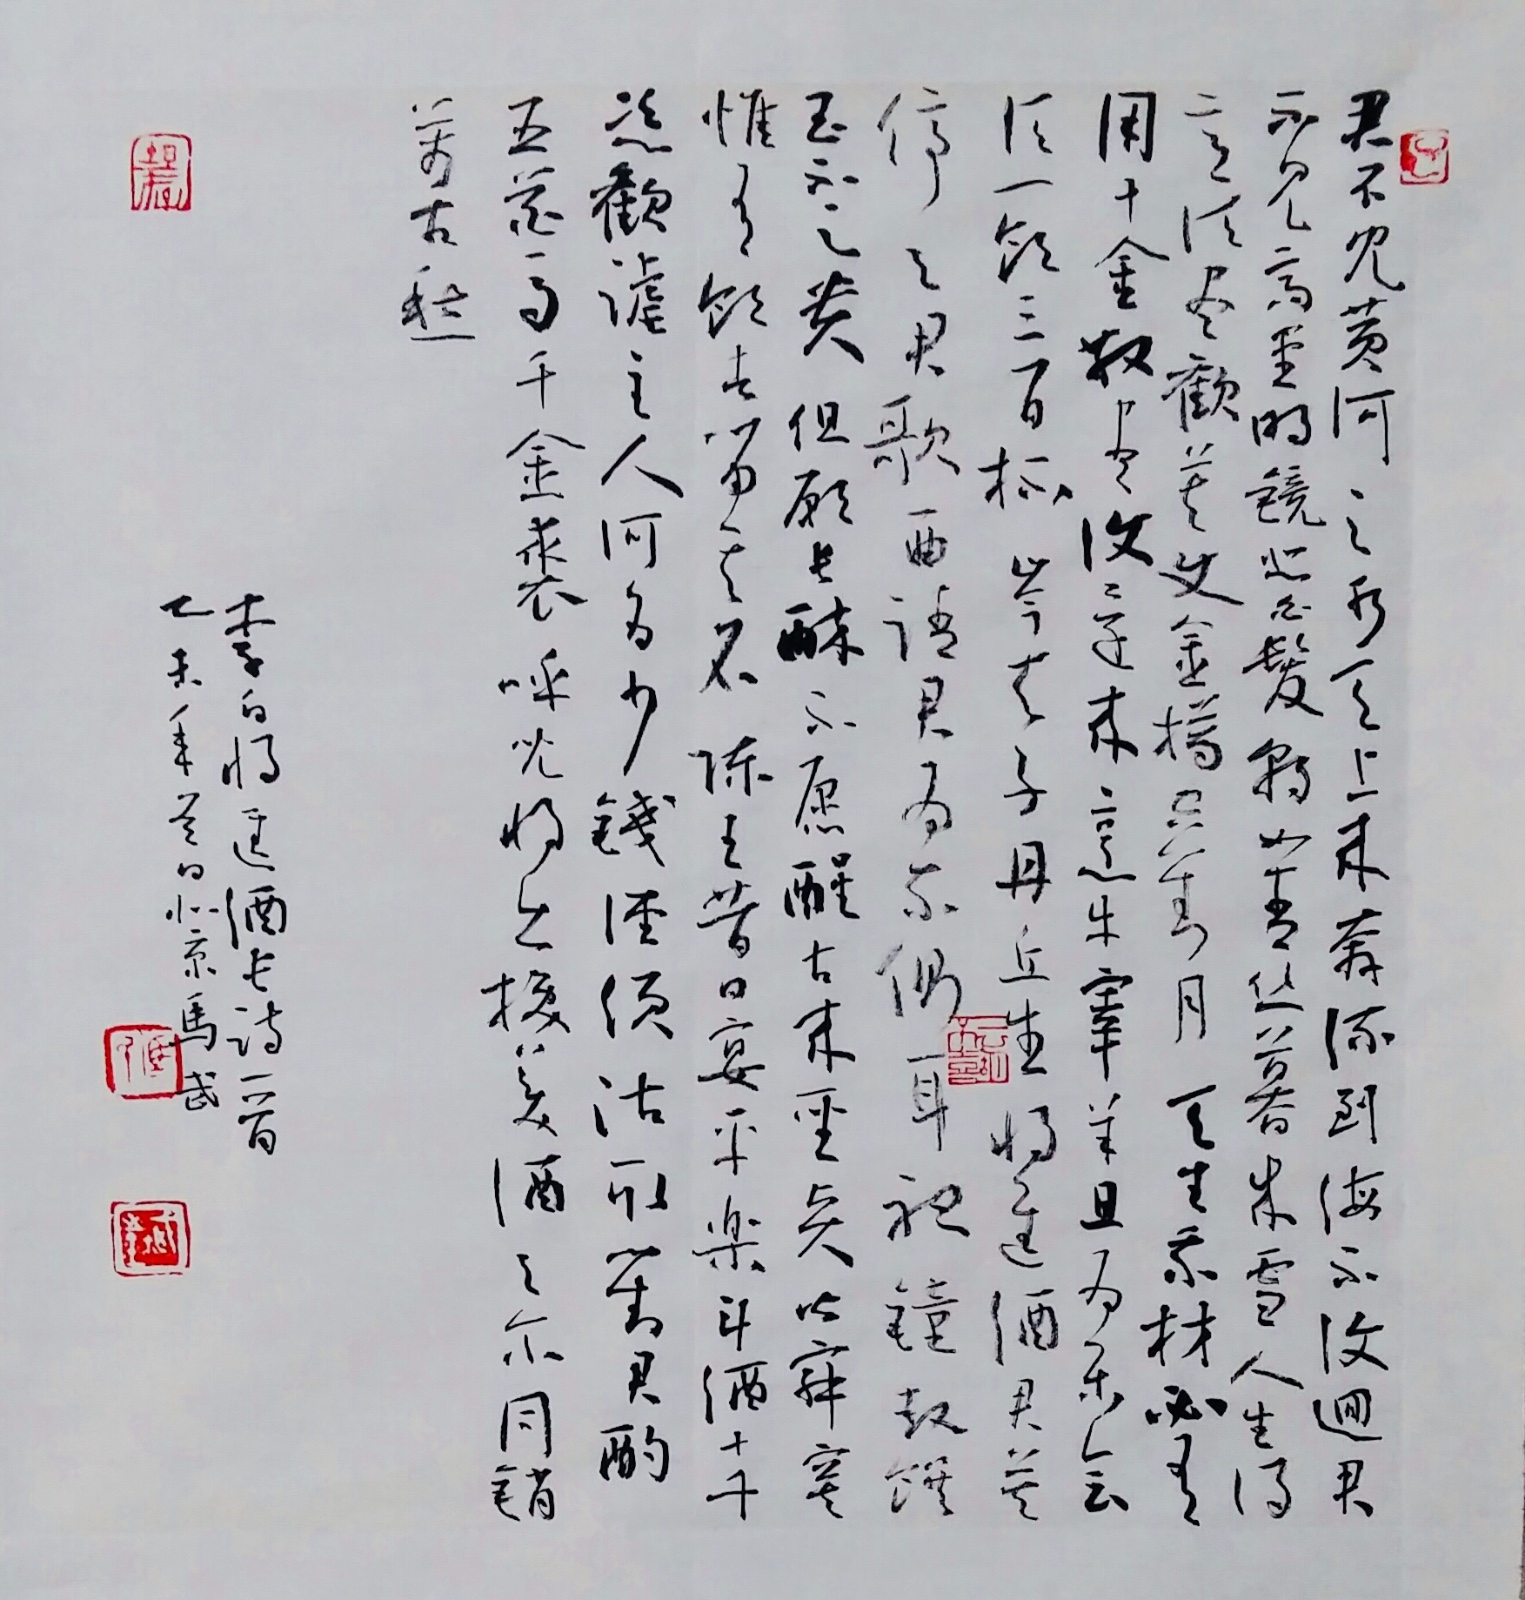 君不见黄河之水天上来奔流到海不復迴君
不见高堂明鏡悲白髮朝如青丝暮成雪人生得
意须尽歡莫使金樽空對月天生我材必有
用千金散尽復還来烹牛宰羊且为乐会
须一飲三百杯岑夫子丹丘生将進酒君莫
停与君歌一曲請君为我側耳聽鐘鼓饌
玉不足貴但願长醉不愿醒古来聖贤皆寂寞
惟有飲者留其名陈王昔日宴平楽斗酒十千
恣歡謔主人何为少錢徑须沽取對君酌
五花马千金裘呼児将出换美酒与尔同銷
萬古愁
李白将進酒长诗一首
乙未年夏日北京馬武